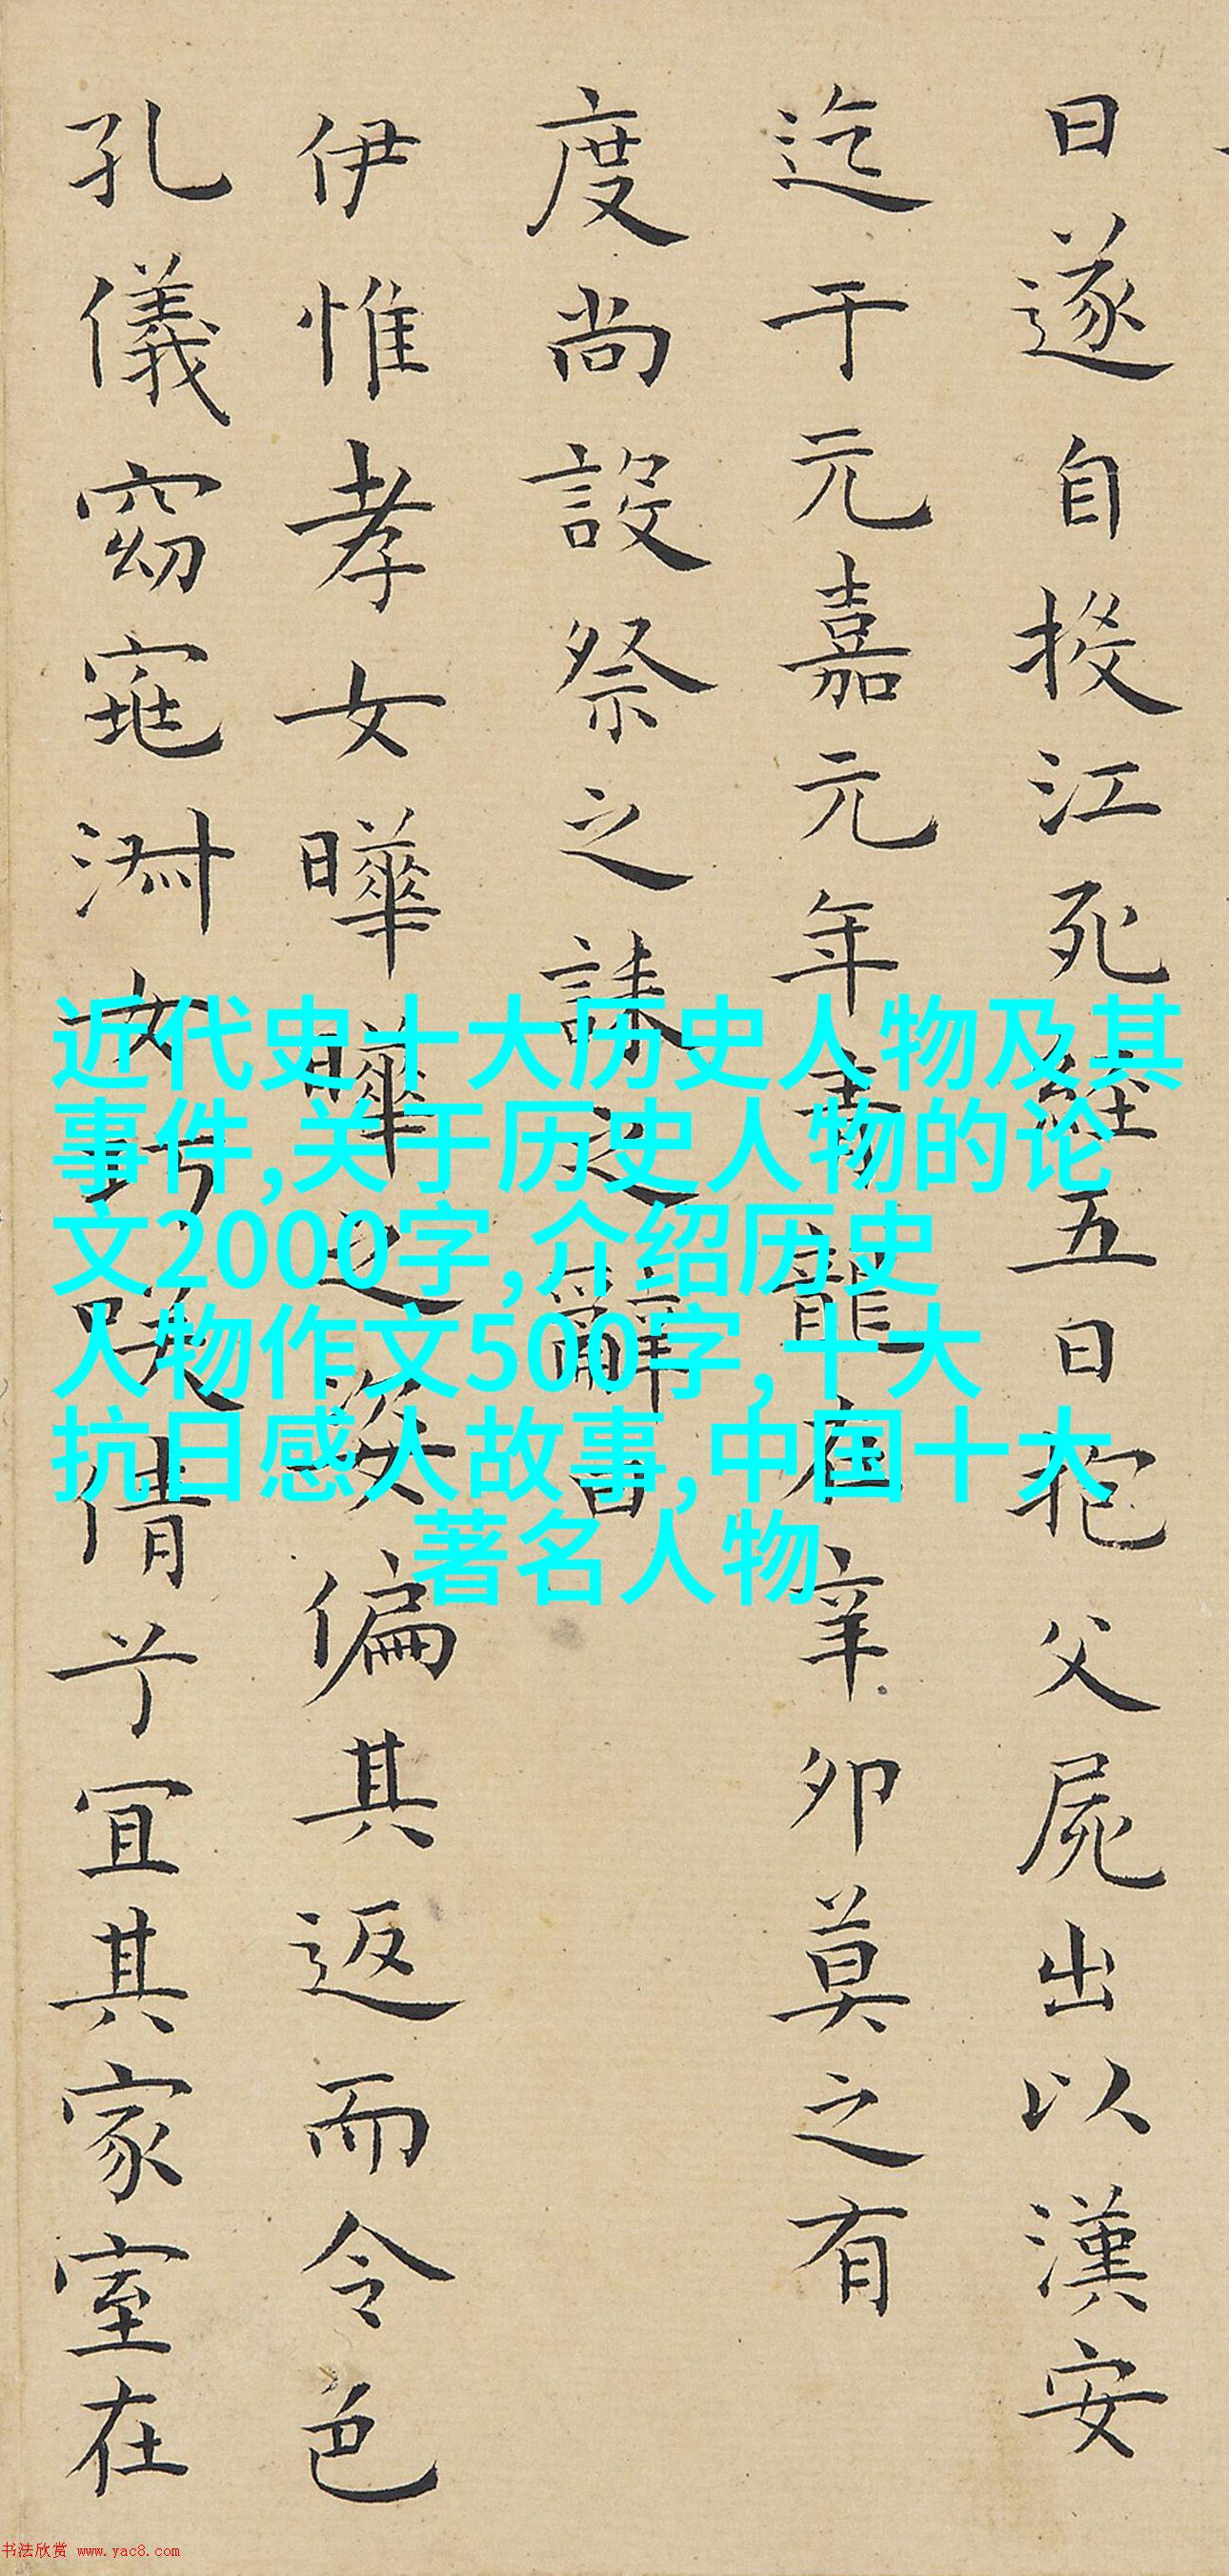 日遂自投江死經五日抱父屍出以漢安
迄于元嘉元年青龍在辛卯莫之有
度尚設祭之誄之辭曰
伊惟孝女曄曄之姿偏其返而令色
孔儀窈窕淑女巧咲倩兮宜其家室在
近代史十大历史人物及其
事件,关于历史人物的论
文2000字,介绍历史
人物作文500字,十大
抗日感人故事,中国十大
著名人物
书法欣赏 www.yac8.com